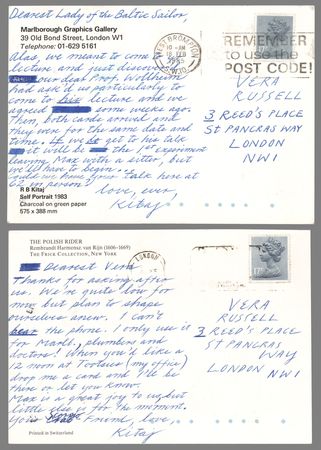 Dearest Lady of the Baltic Sailor,
Marlborough Graphics Gallery
39 Old Bond Street, London W1
Telephone: 01-629 5161
Alas, we meant to come to
lecture and just discovered
our dear Prof. Wollheim
had ask'd us particularly to
come to his lecture and we
agreed some weeks ago.
Then, both cards arrived and
they were for the same date and
time. If we get to his talk
it will be the 1st experiment
leaving Max with a sitter, but
we'll have to begin.
Could we have your talk here at
62 in person?
love, ever,
Kitaj
R B Kitaj
Self Portrait 1983
Charcoal on green paper
575 x 388 mm
WEST BROMPTON
10 - AM
FEB
1985
S.W.10
REMEMBER
to use the
POST CODE!
17P
VERA
RUSSELL
3 REED'S PLACE
ST PANCRAS WAY
LONDON
NW1
THE POLISH RIDER
Rembrandt Harmensz. van Rijn (1606-1669)
THE FRICK COLLECTION, NEW YORK
Dearest Vera
Thanks for asking after
us. We're quite low for
now but plan to shape
ourselves anew. I can't
bear the phone. I only use it
for Marlb., plumbers and
doctors! When you'd like a
12 noon at Tootsies (my office)
drop me a card and I'll be
there or let you know.
Max is a great joy to us, but
little else is for the moment.
Your Friend, love,
Kitaj
Printed in Switzerland
LONDON
17P
VERA
RUSSELL
3 REED'S PLACE
ST PANCRAS
WAY
LONDON
NW1